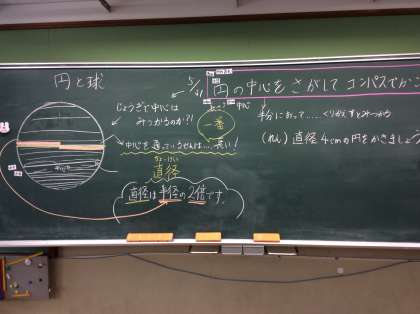 円と球
5/41
円の中心をさがして コンパスでかこ
じょうぎで中心は
みつかるのか?!
一番
中心
半分におって……くりかえすとみつかる
(れん) 直径4cmの円をかきましょう
中心を通っているせんは……長い!
ちょっけい
直径
直径は半径の2倍です。